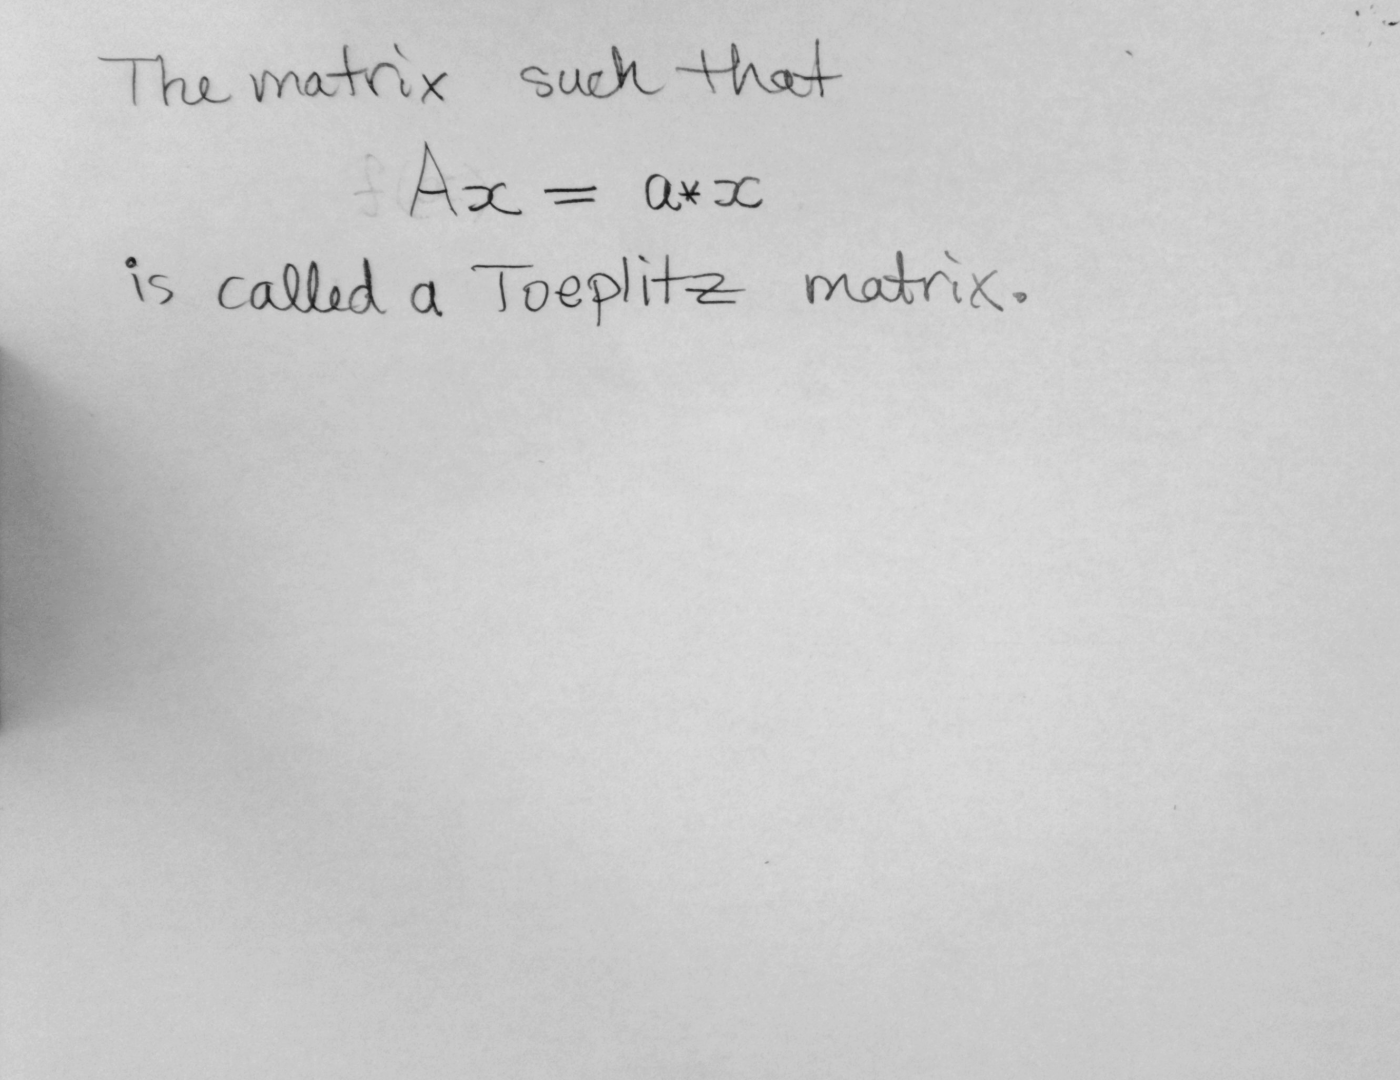 The matrix such that
Ax = a*x
is called a Toeplitz matrix.